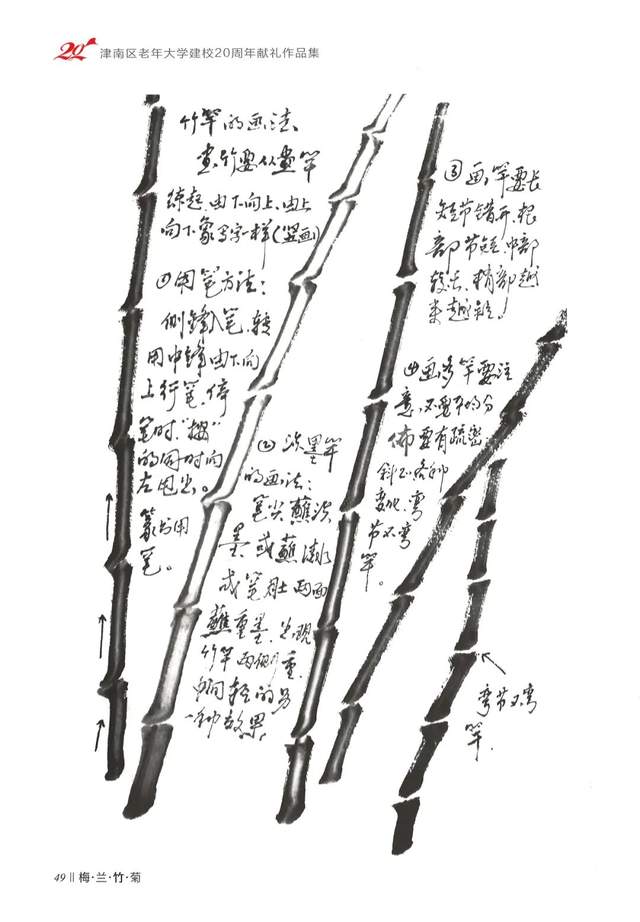 津南区老年大学建校20周年献礼作品集
竹竿的画法、
画竹要从画竿
练起.由下向上、由上
向下.象写字一样(竖画)
①用笔方法：
侧锋入笔.转
用中锋由下向
上行笔.停
笔时"摁"
的同时向
左甩出。
篆书用
笔。
②淡墨竿
的画法：
笔尖蘸淡
墨.或蘸清水
或笔肚两面
蘸重墨.出现
竹竿两侧重.
中间轻的另
一种效果.
③画竿要长
短节错开.根
部节短.中部
较长、梢部越
来越短.
④画多竿要注
意.不要平均分
佈要有疏密.
斜正各种
变化.弯
节不弯
竿。
弯节不弯
竿.
49 || 梅·兰·竹·菊